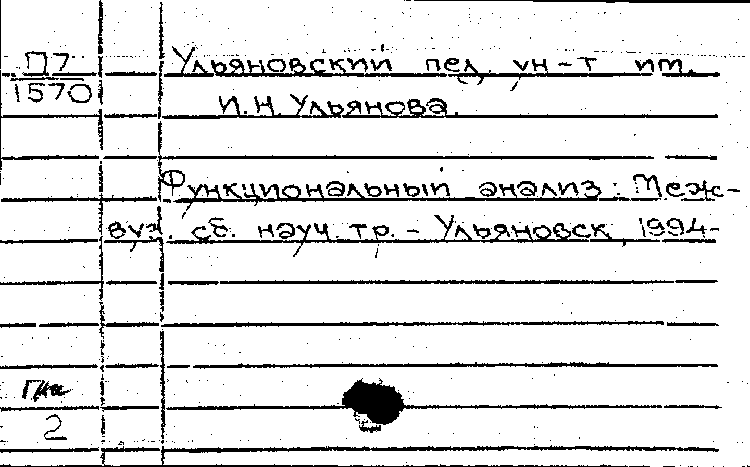 П7
1570
Ульяновский пед. ун-т им.
И.Н. Ульянова.
Функциональный анализ: Меж-
вуз. сб. науч. тр. - Ульяновск, 1994-
2